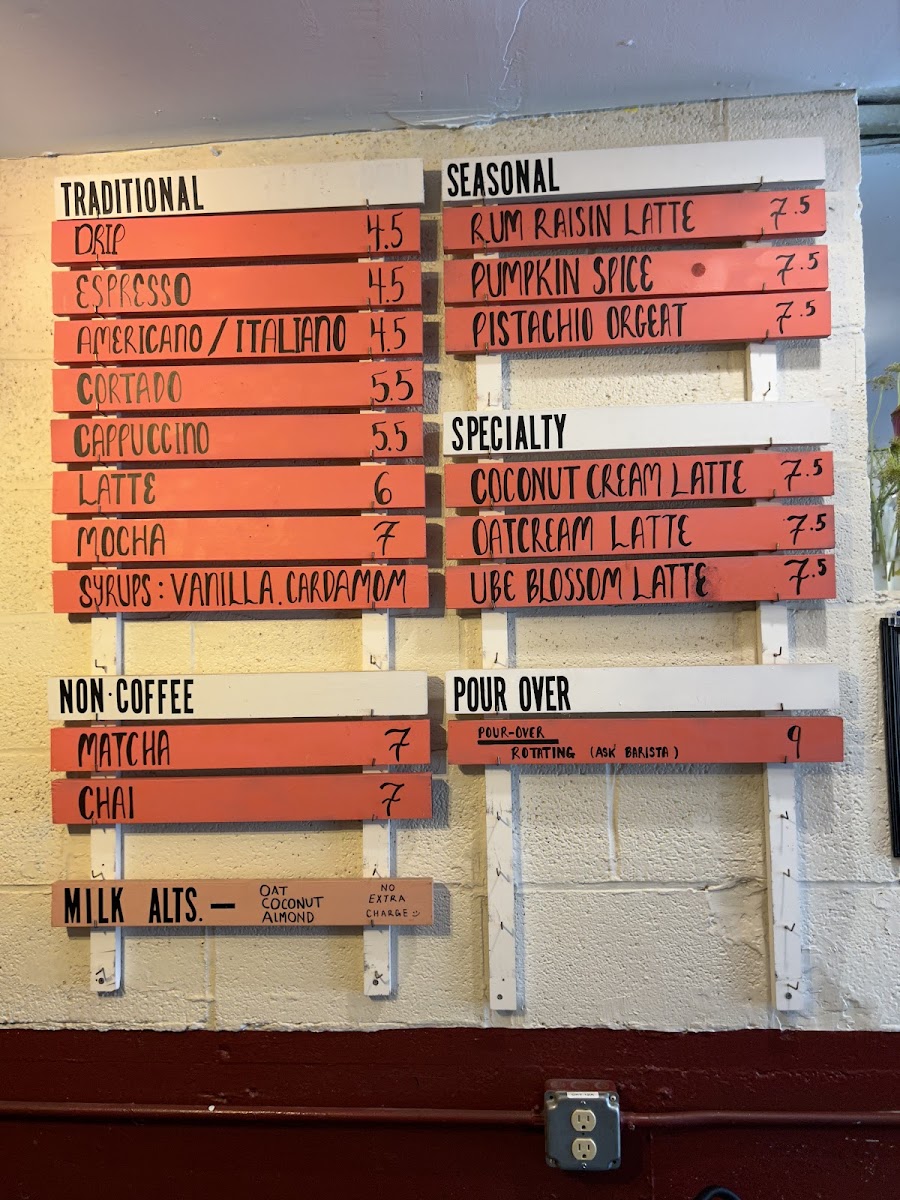 TRADITIONAL
DRIP 4.5
ESPRESSO 4.5
AMERICANO / ITALIANO 4.5
CORTADO 5.5
CAPPUCCINO 5.5
LATTE 6
MOCHA 7
SYRUPS: VANILLA, CARDAMOM
NON·COFFEE
MATCHA 7
CHAI 7
MILK ALTS. —
OAT
COCONUT
ALMOND
NO
EXTRA
CHARGE :)
SEASONAL
RUM RAISIN LATTE 7.5
PUMPKIN SPICE 7.5
PISTACHIO ORGEAT 7.5
SPECIALTY
COCONUT CREAM LATTE 7.5
OATCREAM LATTE 7.5
UBE BLOSSOM LATTE 7.5
POUR OVER
POUR-OVER
ROTATING (ASK BARISTA) 9